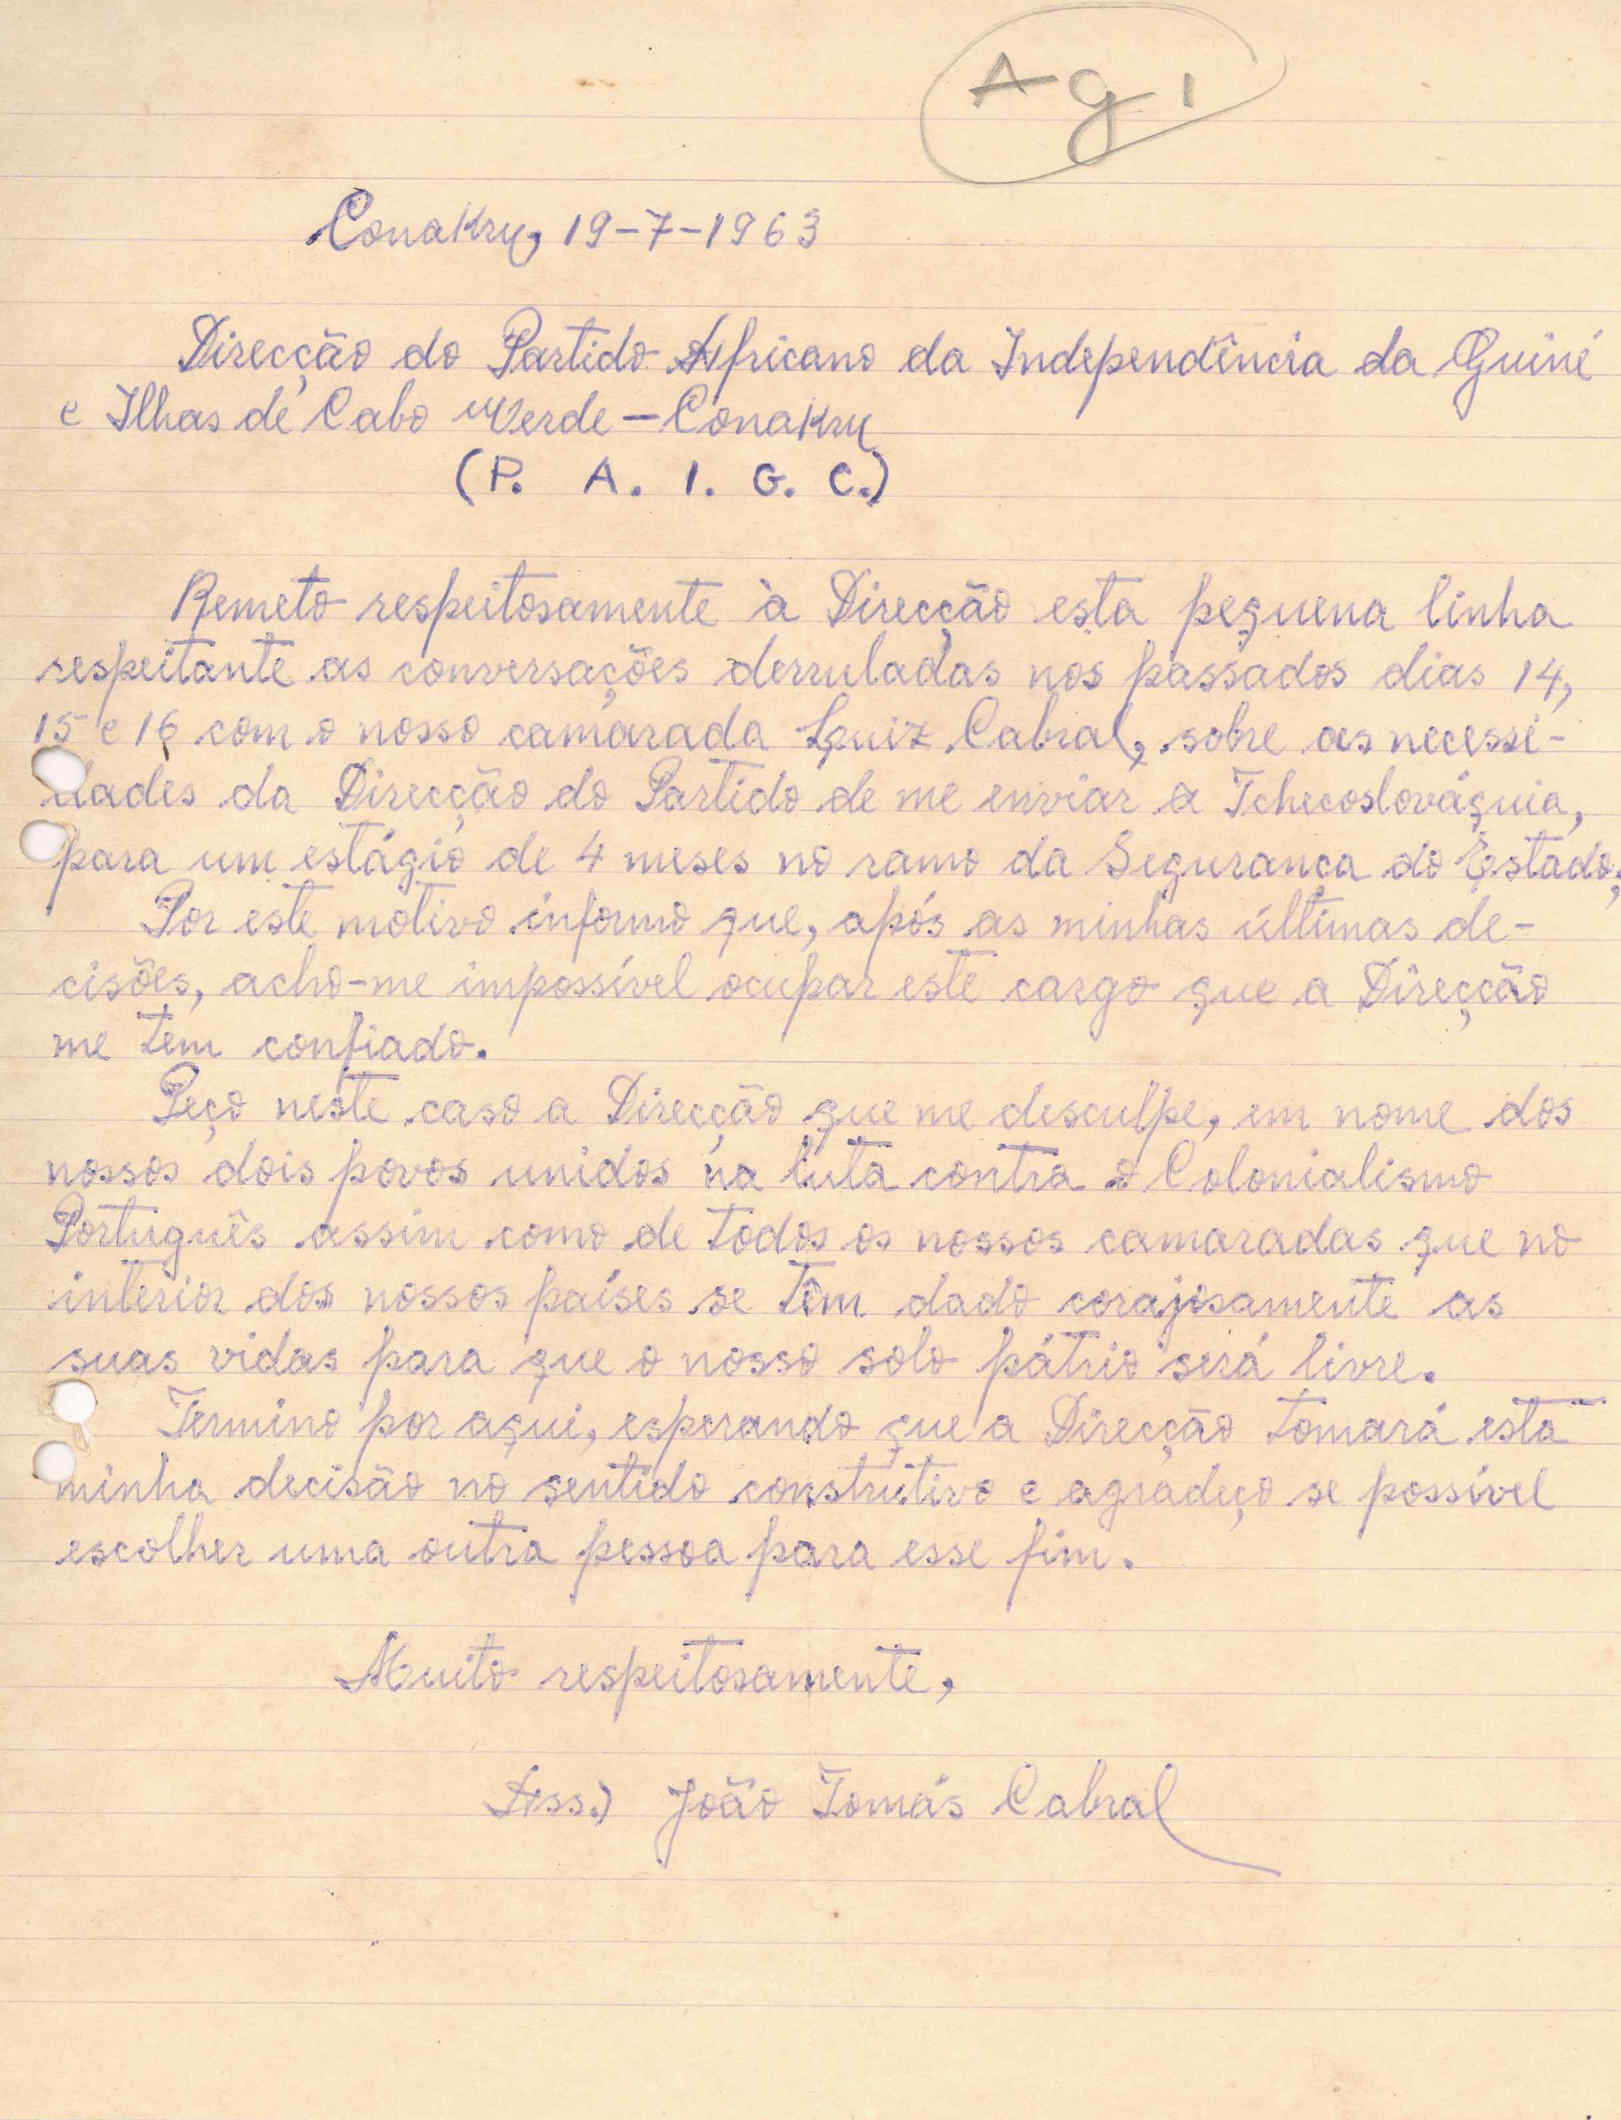 Ag 1
Conakry, 19-7-1963
Direcção do Partido Africano da Independência da Guiné
e Ilhas de Cabo Verde – Conakry
(P. A. I. G. C.)
Remeto respeitosamente à Direcção esta pequena linha
respeitante as conversações derruladas nos passados dias 14,
15 e 16 com o nosso camarada Luiz Cabral, sobre as necessi-
dades da Direcção do Partido de me enviar a Tchecoslováquia,
para um estágio de 4 meses no ramo da Segurança do Estado;
Por este motivo informo que, após as minhas últimas de-
cisões, acho-me impossível ocupar este cargo que a Direcção
me tem confiado.
Peço neste caso a Direcção que me desculpe, em nome dos
nossos dois povos unidos na luta contra o Colonialismo
Português assim como de todos os nossos camaradas que no
interior dos nossos países se têm dado corajosamente as
suas vidas para que o nosso solo pátrio será livre.
Termino por aqui, esperando que a Direcção tomará esta
minha decisão no sentido construtivo e agradeço se possível
escolher uma outra pessoa para esse fim.
Muito respeitosamente,
Ass.) João Tomás Cabral